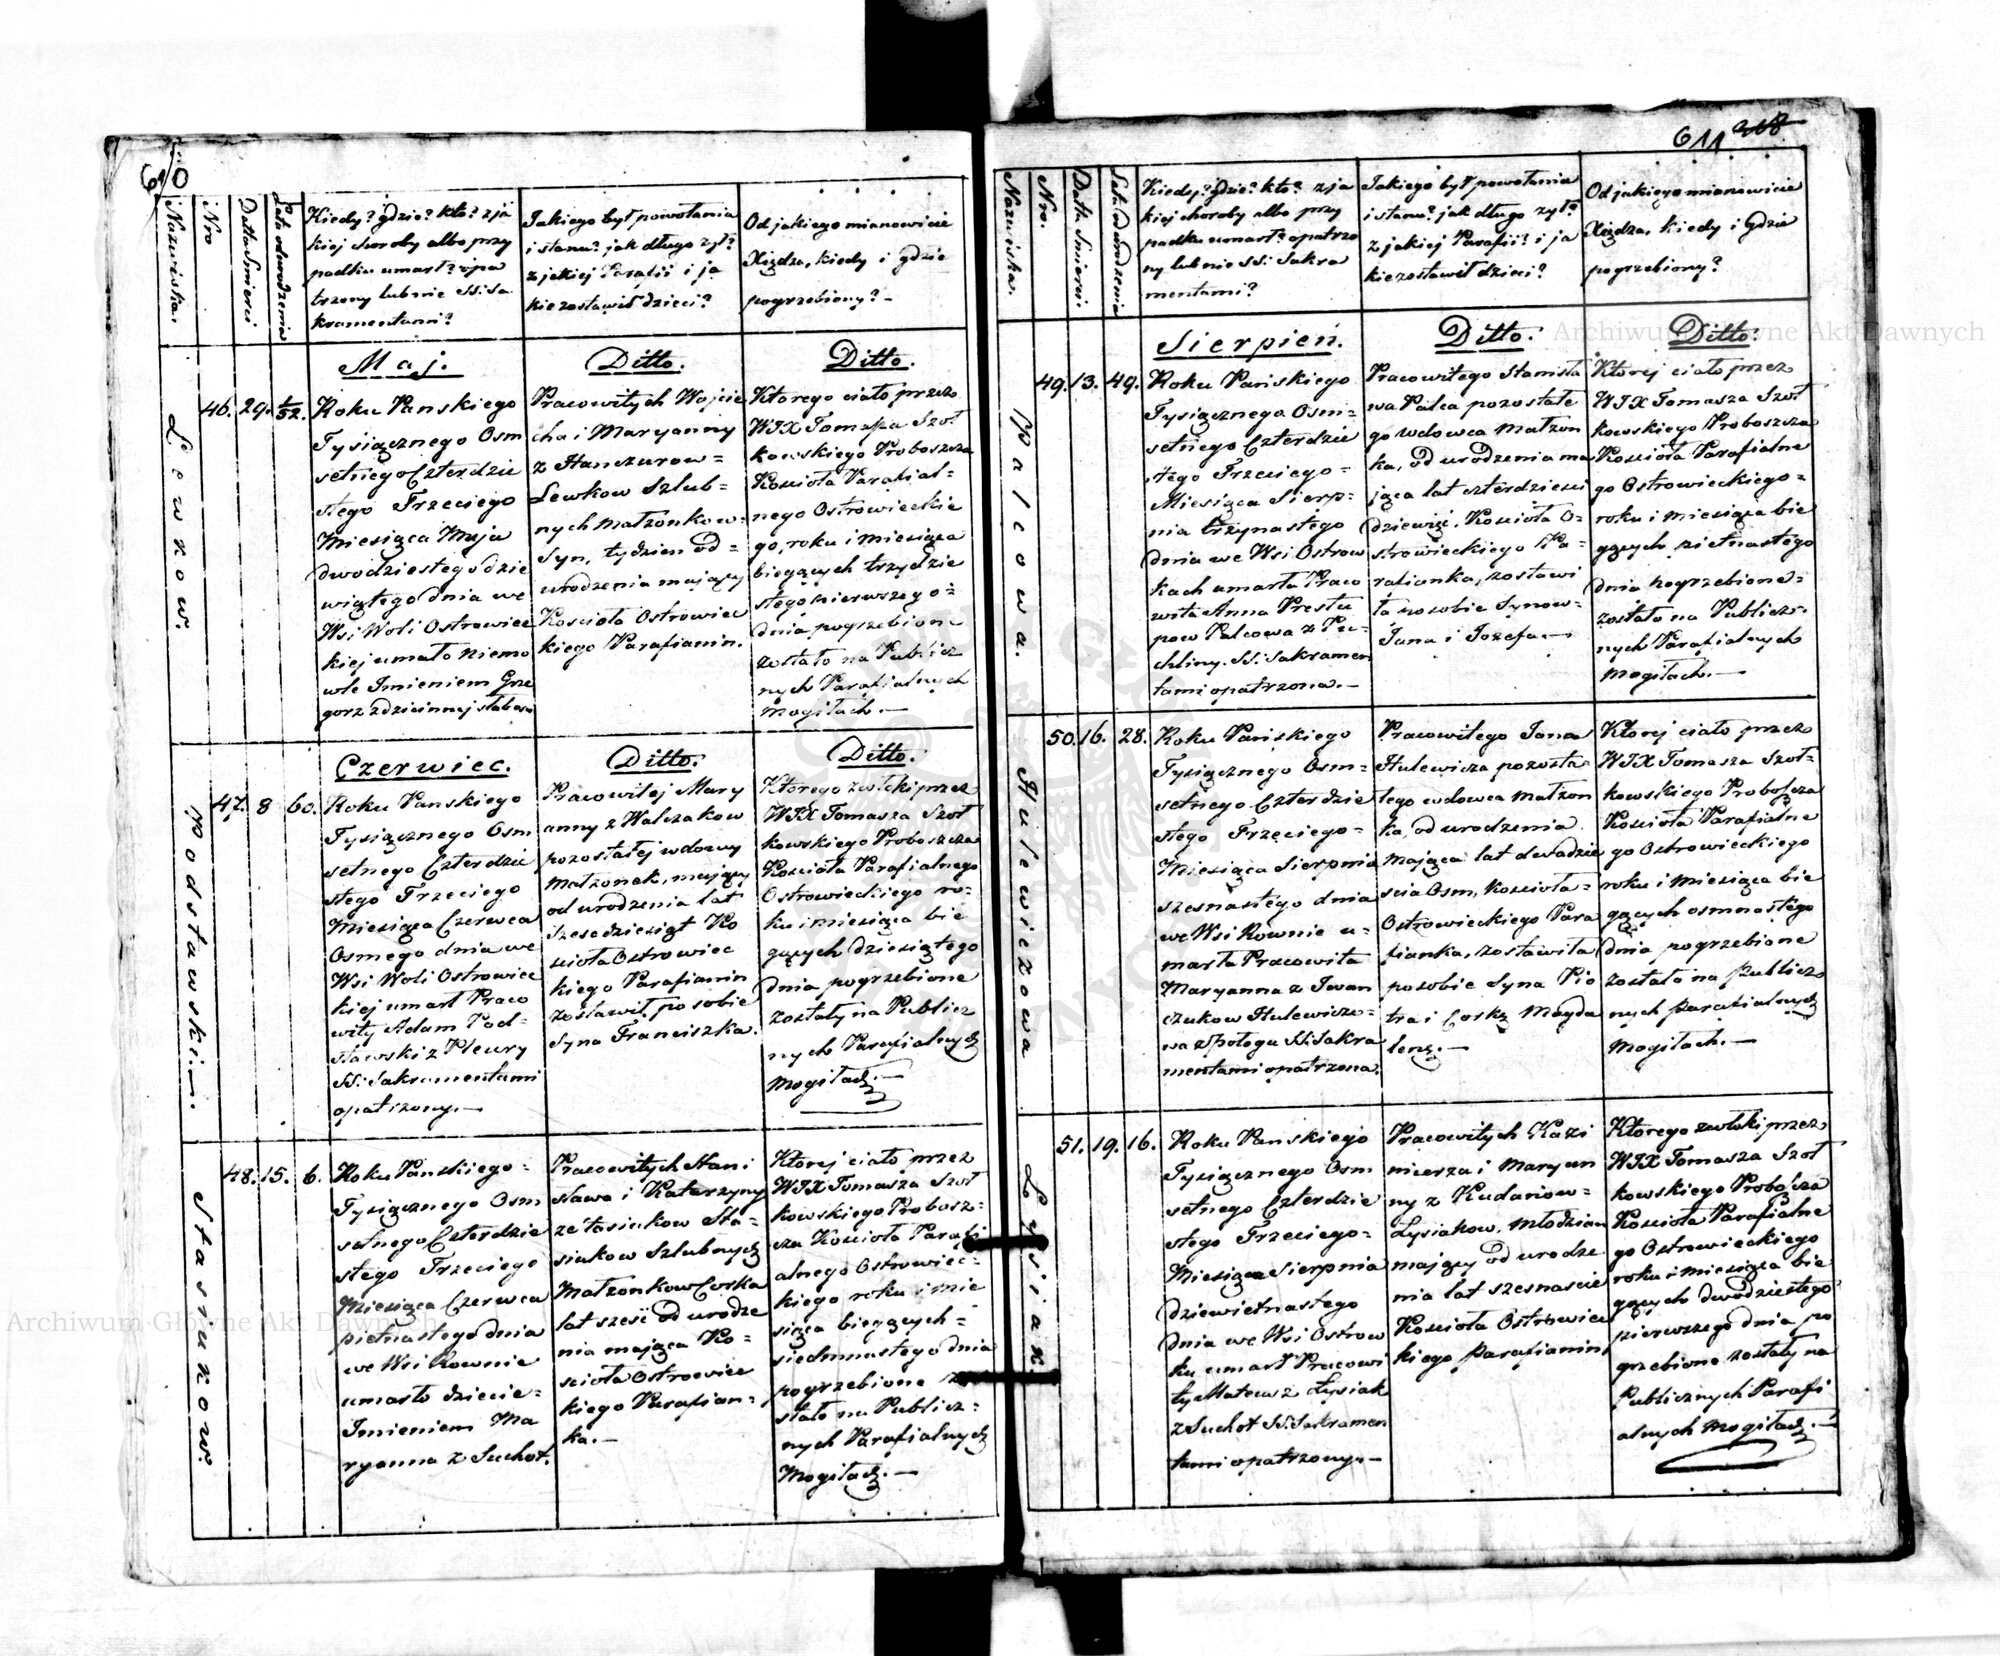 610
Nazwiska.
Nro
Datta Smierci
Lata od urodzenia
Kiedy? gdzie? kto? z ja
kiej choroby albo przy
padku umarł? opa
trzony lub nie SS: Sa
kramentami?
Jakiego był powołania
i stanu? jak długo żył?
z jakiej Parafii i ja
kie zostawił dzieci?
Od jakiego mianowicie
Xiędza, kiedy i gdzie
pogrzebiony? –
Lewkow.
46. 29. 1/52.
Maj.
Roku Panskiego
Tysiącznego Osm
setnego Czterdzie
stego Trzeciego
Miesiąca Maja
dwodziestego dzie
wiątego dnia we
Wsi Woli Ostrowiec
kiej umało Niemo
wle Imieniem Grze
gorz z dziecinnej słabos
Ditto.
Pracowitych Wojcie
cha i Maryanny
z Hanczurow=
Lewkow Szlub=
nych Małzonkow=
Syn, tydzien od=
urodzenia mający
Kosciola Ostrowiec
kiego Parafianin.
Ditto.
Ktorego ciało przez
WJX Tomasza Szoł
kowskiego Proboszcza
Kosciola Parafial=
nego Ostrowieckie
go, roku i miesiąca
bieqących trzydzie
stego pierwszego=
dnia pogrzebione
zostało na Publicz
nych Parafialnych
Mogiłach. –
Podstawski –.
47. 8 60.
Czerwiec.
Roku Panskiego
Tysiącznego Osm
setnego Czterdzie
stego Trzeciego
Miesiąca Czerwca
Osmego dnia we
Wsi Woli Ostrowiec
kiej umarł Praco
wity Adam Pod=
stawski z Pleury
SS: Sakramentami
opatrzony. –
Ditto.
Pracowitej Mary
anny z Walczakow
pozostałej wdowy
Małzonek, mający
od urodzenia lat
Szescdziesiąt Ko
sciola Ostrowiec
kiego Parafianin
zostawił po sobie
Syna Franciszka.
Ditto.
Ktorego zwłoki przez
WJX Tomasza Szoł
kowskiego Proboszcza
Kosciola Parafialnego
Ostrowieckiego ro=
ku i miesiąca bie
gących dziesiątego
dnia pogrzebione
zostały na Publicz
nych Parafialnych
Mogiłach. –
Stasiukow.
48. 15. 6.
Roku Panskiego=
Tysiącznego Osm
setnego Czterdzie
stego Trzeciego
Miesiąca Czerwca
pietnastego dnia
we Wsi Rownie
umarło dziecie=
Imieniem Ma
ryanna z Suchot.
Pracowitych Stani
sława i Katarzyny
ze Stasiukow Sta=
siukow Szlubnych
Małzonkow Corka
lat szesć od urodze
nia mająca Ko=
sciola Ostrowiec
kiego Parafian=
ka. –
Ktorej ciało przez
WJX Tomasza Szoł
kowskiego Probosz=
cza Kosciola Parafi
alnego Ostrowiec=
kiego roku i mie
siąca biegących=
siedmnastego dnia
pogrzebione zo
stało na Publicz=
nych Parafialnych
Mogiłach. –
611 318
Nazwiska.
Nro.
Datta Smierci.
Lata od urodzenia
Kiedy? gdzie? kto? z ja
kiej choroby albo przy
padku umarł? opatrzo
ny lub nie SS: Sakra
mentami?
Jakiego był powołania
i stanu? jak długo żył?
z jakiej Parafii? i ja
kie zostawił dzieci?
Od jakiego mianowicie
Xiędza, kiedy i gdzie
pogrzebiony?
Palcowa.
49. 13. 49.
Sierpień.
Roku Pańskiego
Tysiącznego Osm=
setnego Czterdzie
stego Trzeciego=
Miesiąca Sierp=
nia trzynastego
dnia we Wsi Ostrow
kach umarła Praco
wita Anna Prestu
pow Palcowa z Pu=
chliny. SS: Sakramen
tami opatrzona. –
Ditto.
Pracowitego Stanisła
wa Palca pozostałe
go wdowca Małzon
ka, od urodzenia ma
jąca lat czterdziesci
dziewięć, Kosciola O=
strowieckiego Pa=
rafianka, zostawi
ła po sobie Synow=
Jana i Jozefa –
Ditto.
Ktorej ciało przez
WJX Tomasza Szoł
kowskiego Proboszcza
Kosciola Parafialne
go Ostrowieckiego=
roku i miesiąca bie
gących pietnastego
dnia pogrzebione=
zostało na Publicz=
nych Parafialnych
Mogiłach. –
Hulewiczowa
50. 16. 28.
Roku Pańskiego
Tysiącznego Osm=
setnego Czterdzie
stego Trzeciego=
Miesiąca Sierpnia
szesnastego dnia
we Wsi Rownie u=
marła Pracowita
Maryanna z Iwan
czukow Hulewiczo=
wa z Pologu SS: Sakra
mentami opatrzona.
Pracowitego Jana
Hulewicza pozosta=
łego wdowca Małzon
ka, od urodzenia
mająca lat dwadzie
scia Osm, Kosciola=
Ostrowieckiego Para
fianka, zostawiła
po sobie Syna Pio
tra i Corkę Magda
lenę. –
Ktorej ciało przez
WJX Tomasza Szoł=
kowskiego Proboszcza
Kosciola Parafialne
go Ostrowieckiego
roku i miesiąca bie
gących osmnastego
dnia pogrzebione
zostało na Publicz
nych Parafialnych
Mogiłach. –
Lysiak.
51. 19. 16.
Roku Panskiego
Tysiącznego Osm
setnego Czterdzie
stego Trzeciego=
Miesiąca Sierpnia
dziewietnastego
dnia we Wsi Ostrow
ku umarł Pracowi
ty Mateusz Łysiak
z Suchot SS: Sakramen
tami opatrzony. –
Pracowitych Kazi
mierza i Maryan
ny z Kudariow=
Łysiakow, Młodzian
mający od urodze
nia lat szesnascie
Kosciola Ostrowiec
kiego Parafianin
Ktorego zwłoki przez
WJX Tomasza Szoł
kowskiego Proboszcza
Kosciola Parafialne
go Ostrowieckiego
roku i miesiąca bie
gących dwodziestego
pierwszego dnia po
grzebione zostały na
Publicznych Parafi
alnych Mogiłach. –
Archiwum Główne Akt Dawnych
Archiwum Główne Akt Dawnych